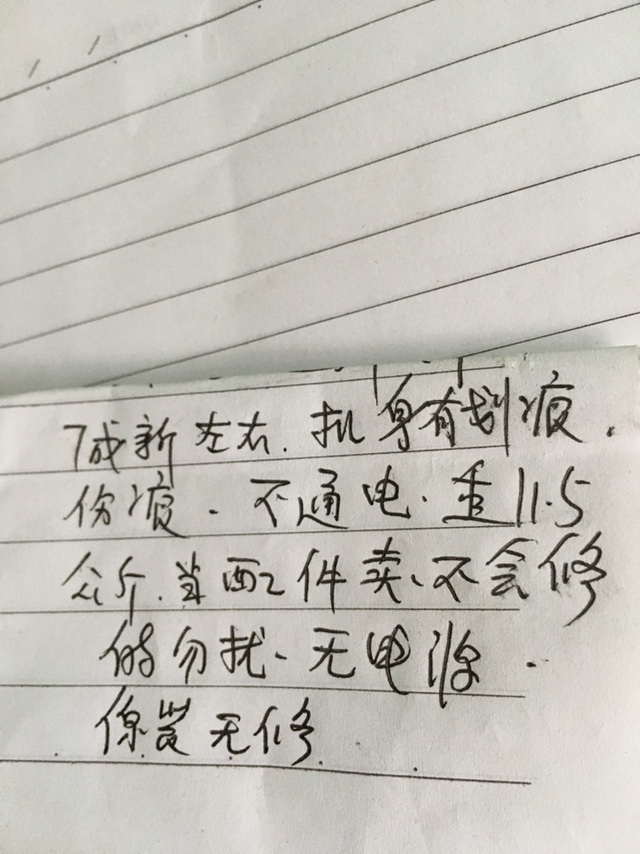 7成新左右.机身有划痕.
伤痕.不通电.重11.5
公斤.当配件卖、不会修
的勿扰.无电源.
原装无修